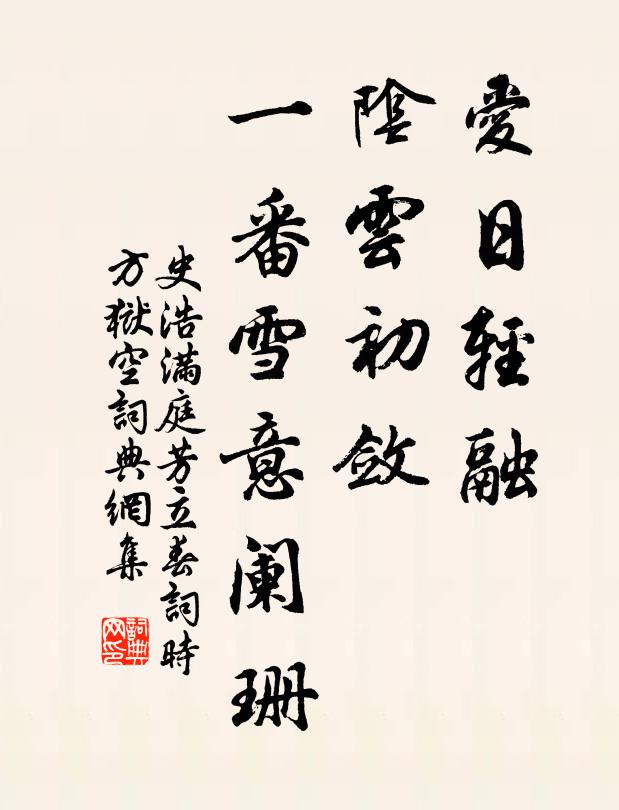 愛日輕融
陰雲初斂
一番雪意闌珊
史浩滿庭芳立春詞時
方獄空詞典網集
詞典
网印